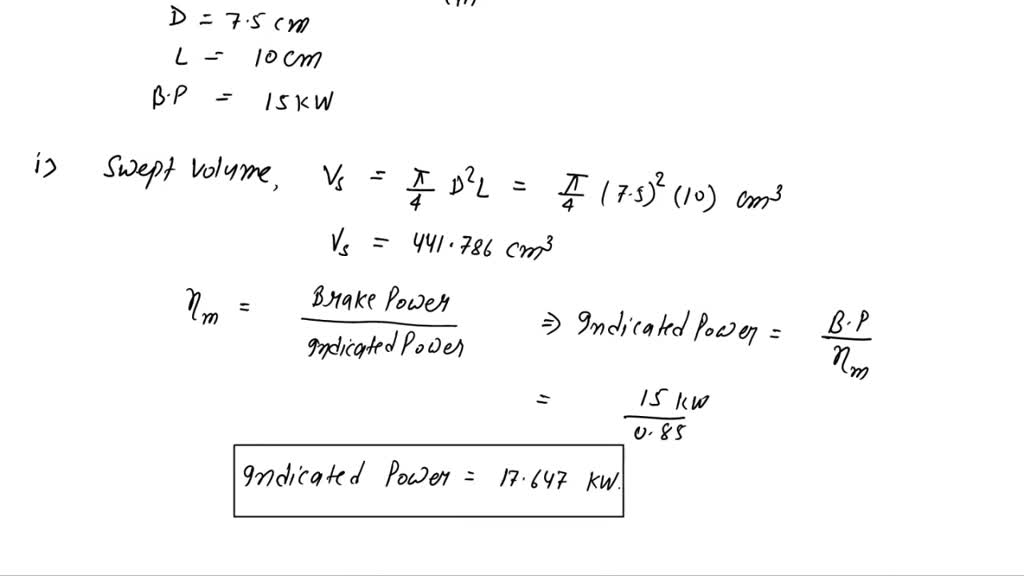 D = 7.5 cm
L = 10 cm
B.P = 15 KW
i> Swept Volume, Vs = π/4 D²L = π/4 (7.5)² (10) cm³
Vs = 441.786 cm³
ηm = Brake Power / Indicated Power ⇒ Indicated Power = B.P / ηm
= 15 KW / 0.85
Indicated Power = 17.647 KW.